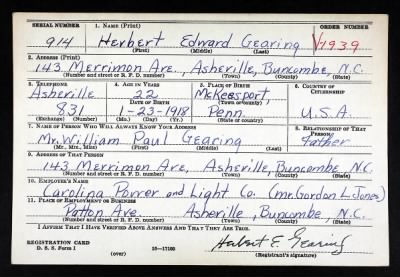 SERIAL NUMBER 1. NAME (Print) ORDER NUMBER
914 Herbert Edward Gearing V1939
(First) (Middle) (Last)
2. ADDRESS (Print)
143 Merrimon Ave., Asheville, Buncombe, N.C.
(Number and street or R. F. D. number) (Town) (County) (State)
3. TELEPHONE 4. AGE IN YEARS 5. PLACE OF BIRTH 6. COUNTRY OF CITIZENSHIP
Asheville 22 McKeesport,
DATE OF BIRTH (Town or county)
831 1-23-1918 Penn. U.S.A.
(Exchange) (Number) (Mo.) (Day) (Yr.) (State or country)
7. NAME OF PERSON WHO WILL ALWAYS KNOW YOUR ADDRESS 8. RELATIONSHIP OF THAT PERSON
Mr. William Paul Gearing Father
(Mr., Mrs., Miss) (First) (Middle) (Last)
9. ADDRESS OF THAT PERSON
143 Merrimon Ave, Asheville, Buncombe N.C.
(Number and street or R. F. D. number) (Town) (County) (State)
10. EMPLOYER'S NAME
Carolina Power and Light Co. (Mr. Gordon L. Jones)
11. PLACE OF EMPLOYMENT OR BUSINESS
Patton Ave. Asheville, Buncombe, N.C.
(Number and street or R. F. D. number) (Town) (County) (State)
I AFFIRM THAT I HAVE VERIFIED ABOVE ANSWERS AND THAT THEY ARE TRUE.
Herbert E. Gearing
REGISTRATION CARD
D. S. S. Form 1 (over) 16—17105 (Registrant's signature)